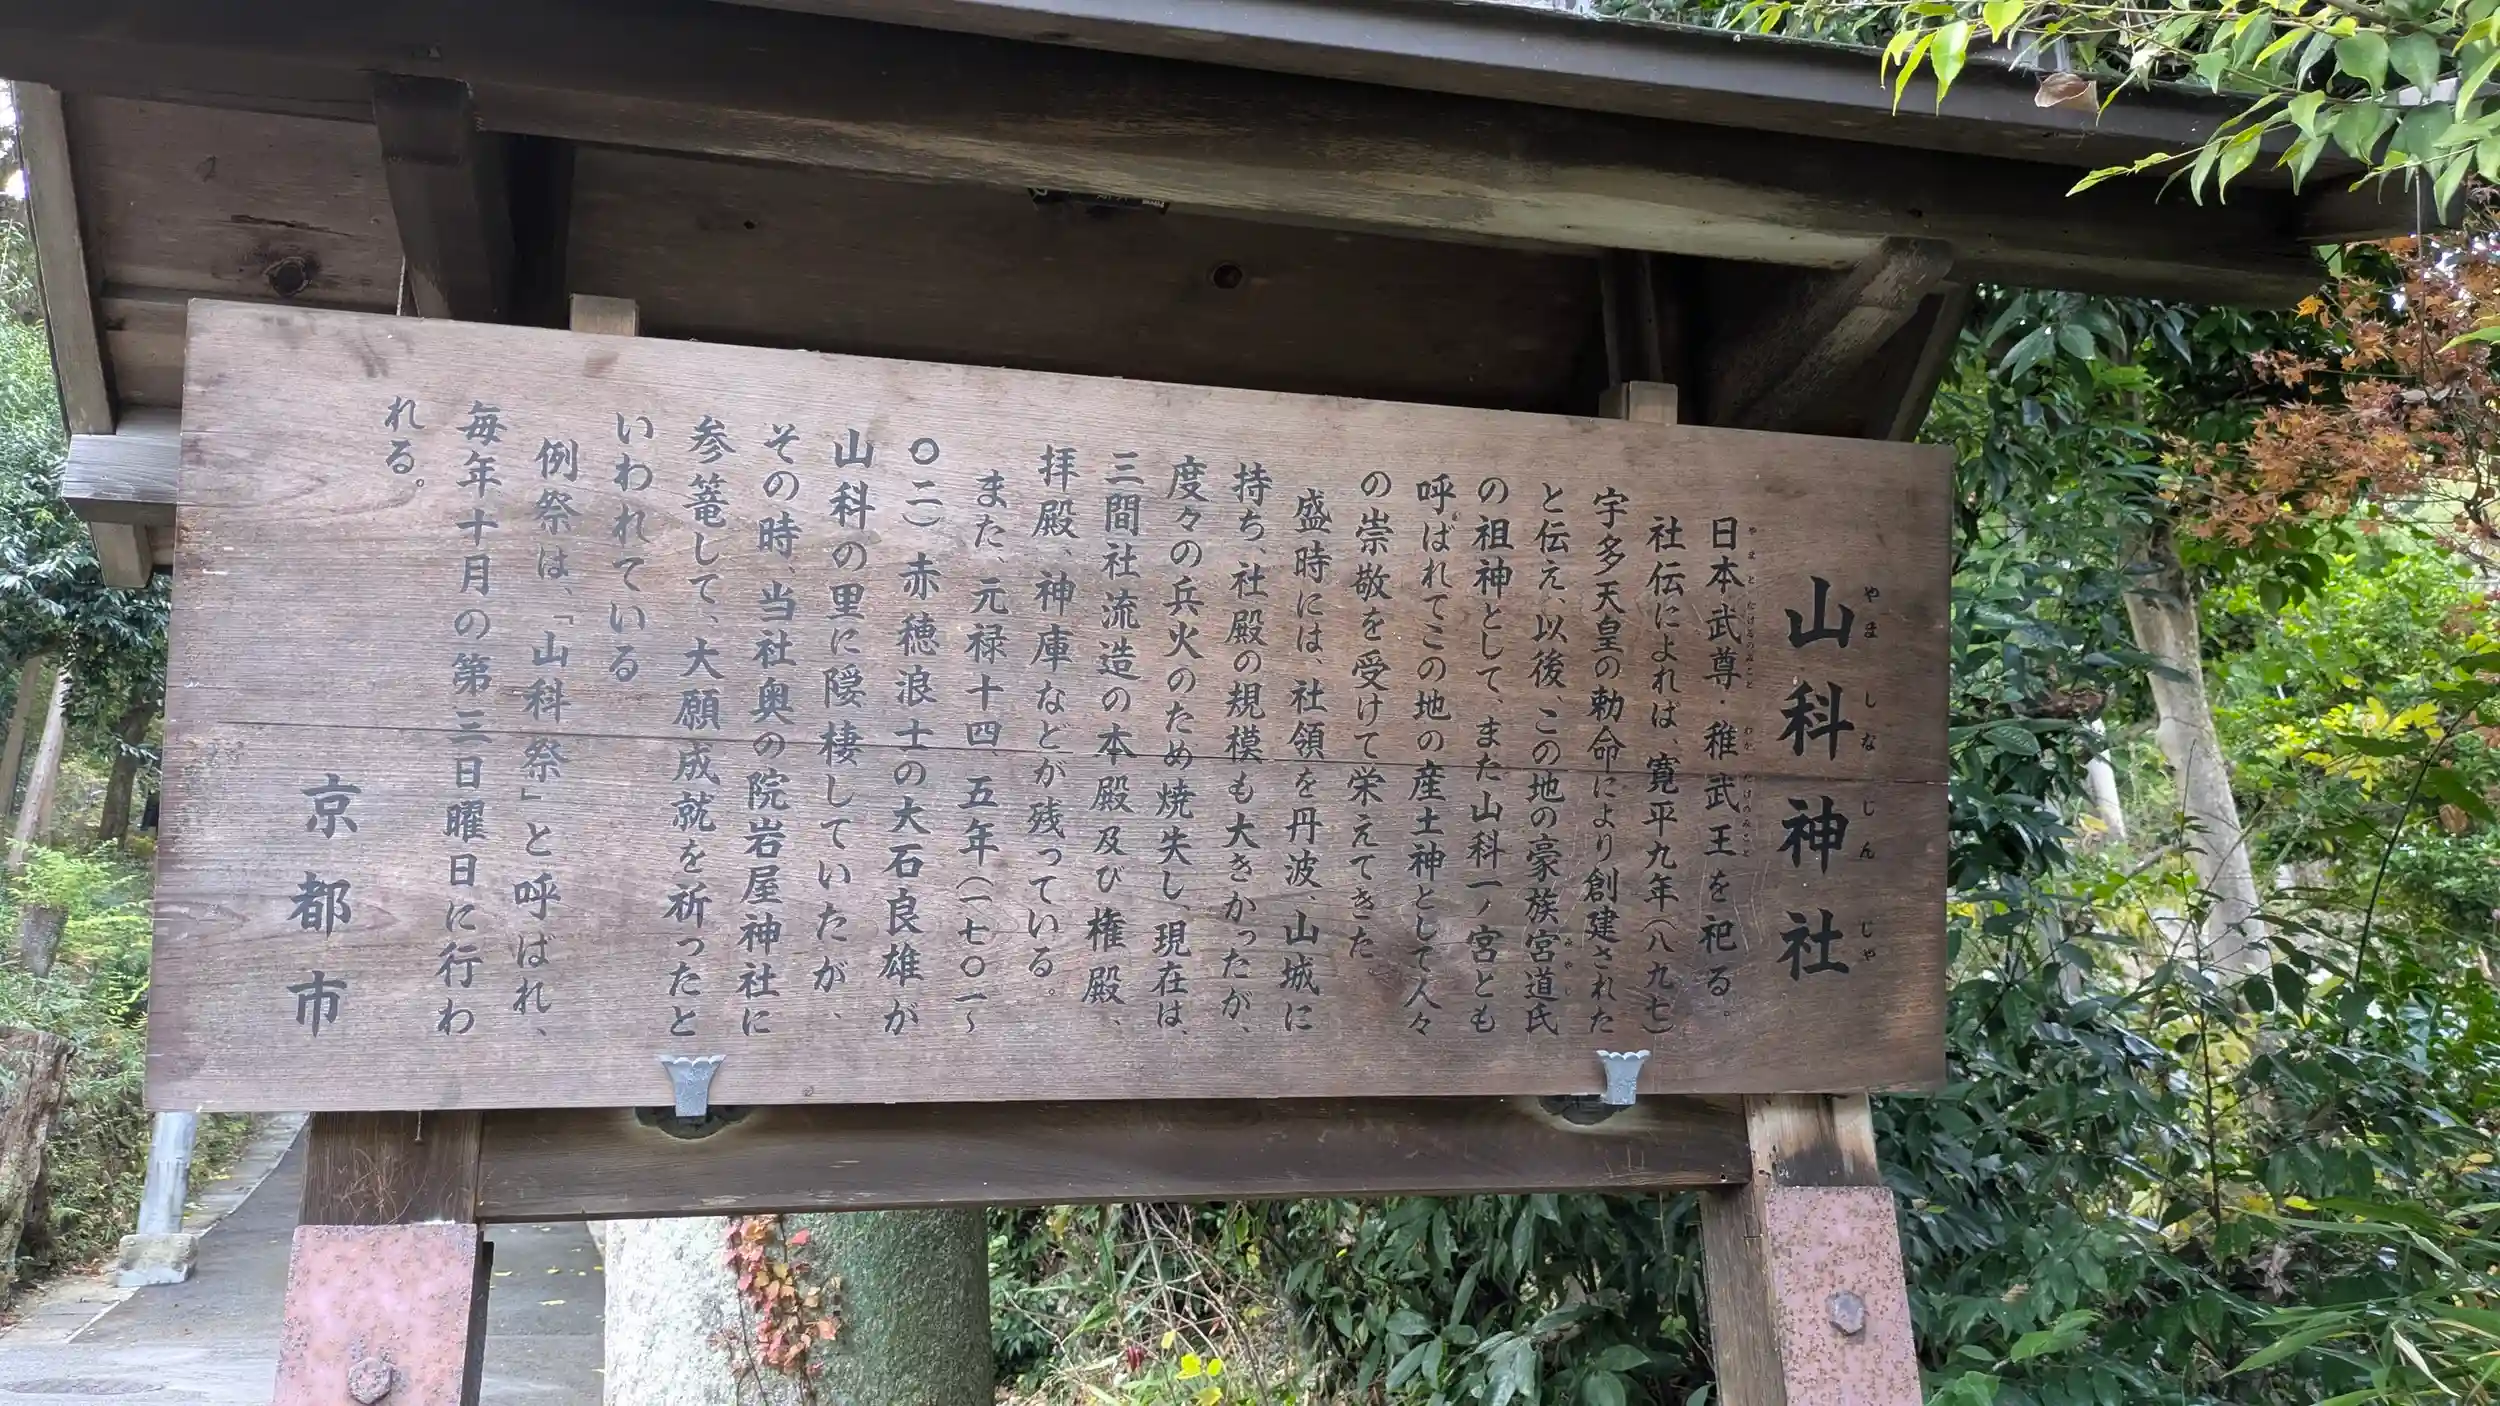 山科神社
やましなじんじゃ
日本武尊・稚武王を祀る。
やまとたけるのみこと
わかたけのみこと
社伝によれば、寛平九年(八九七)
宇多天皇の勅命により創建された
と伝え、以後、この地の豪族宮道氏
みやじ
の祖神として、また山科一ノ宮とも
呼ばれてこの地の産土神として人々
の崇敬を受けて栄えてきた。
盛時には、社領を丹波、山城に
持ち、社殿の規模も大きかったが、
度々の兵火のため焼失し、現在は、
三間社流造の本殿及び権殿、
拝殿、神庫などが残っている。
また、元禄十四、五年(一七〇一~
〇二)赤穂浪士の大石良雄が
山科の里に隠棲していたが、
その時、当社奥の院岩屋神社に
参篭して、大願成就を祈ったと
いわれている
例祭は、「山科祭」と呼ばれ、
毎年十月の第三日曜日に行わ
れる。
京都市